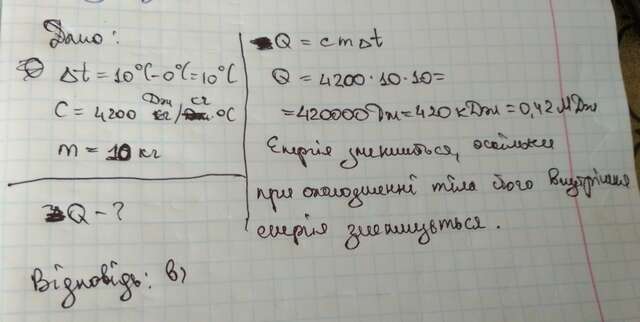 Дано:
Δt = 10°C - 0°C = 10°C
C = 4200 Дж/кг·°C
m = 10 кг
Q - ?
Q = cmΔt
Q = 4200·10·10=
=420000Дж=420 кДж=0,42 МДж
Енергія зменшиться, оскільки
при охолодженні тіла його внутрішня
енергія зменшується.
Відповідь: в)